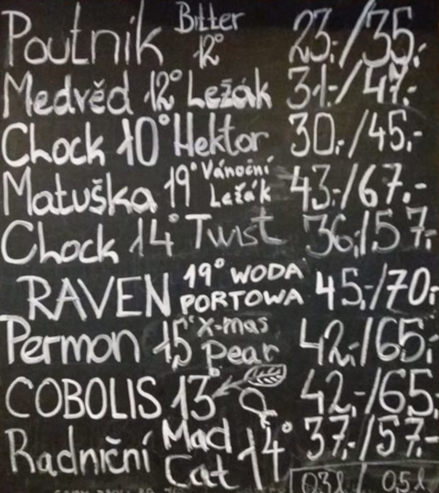 Poutník Bitter 12° 23,-/35,-
Medvěd 12° Ležák 31,-/47,-
Chock 10° Hektor 30,-/45,-
Matuška 19° Vánoční Ležák 43,-/67,-
Chock 14° Twist 36,/57,-
RAVEN 19° WODA PORTOWA 45,-/70,-
Permon 15° X-mas Pear 42,-/65,-
COBOLIS 13° 42,-/65,-
Radniční Mad Cat 14° 37,-/57,-
0,3 l 0,5 l